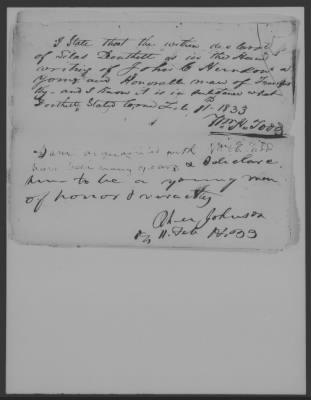 I State that the within de
of Silas Douthett as in the Hand
writing of John C Herndon a
young and Honorable man of
ty. and I know it is in substance what
Douthett Stated to me Feb 11th 1833
Wm H. Todd
I am acquainted with
have been many years & I declare
him to be a young man
of honor & veracity
Johnson
11. Feb 1833